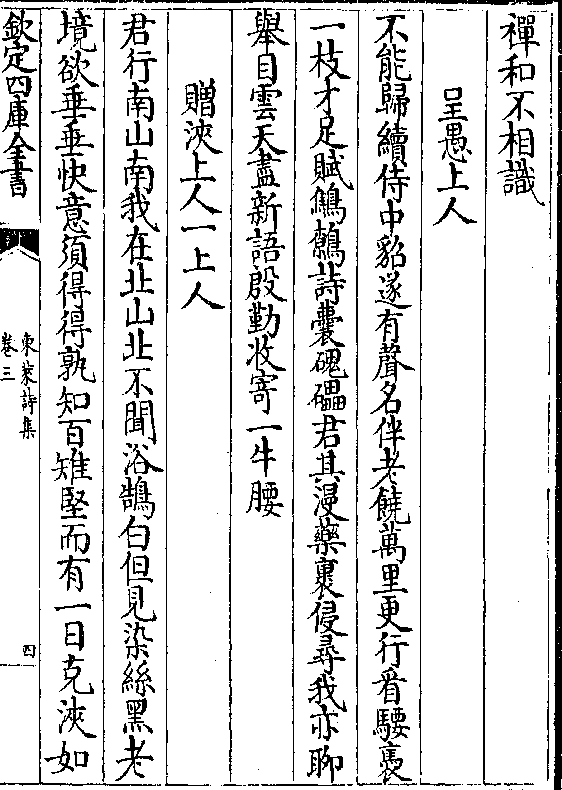 禪和不相識
呈愚上人
不能歸續侍中貂遂有聲名伴老饒萬里更行看騕褭
一枝才足賦鷦鷯詩囊磈礧君其漫藥裹侵尋我亦聊
舉目雲天盡新語殷勤收寄一牛腰
贈浹上人一上人
君行南山南我在北山北不聞浴鵠白但見染絲黑老
境欲垂垂快意須得得孰知百雉堅而有一日克浹如
欽定四庫全書
東萊詩集
卷三
四